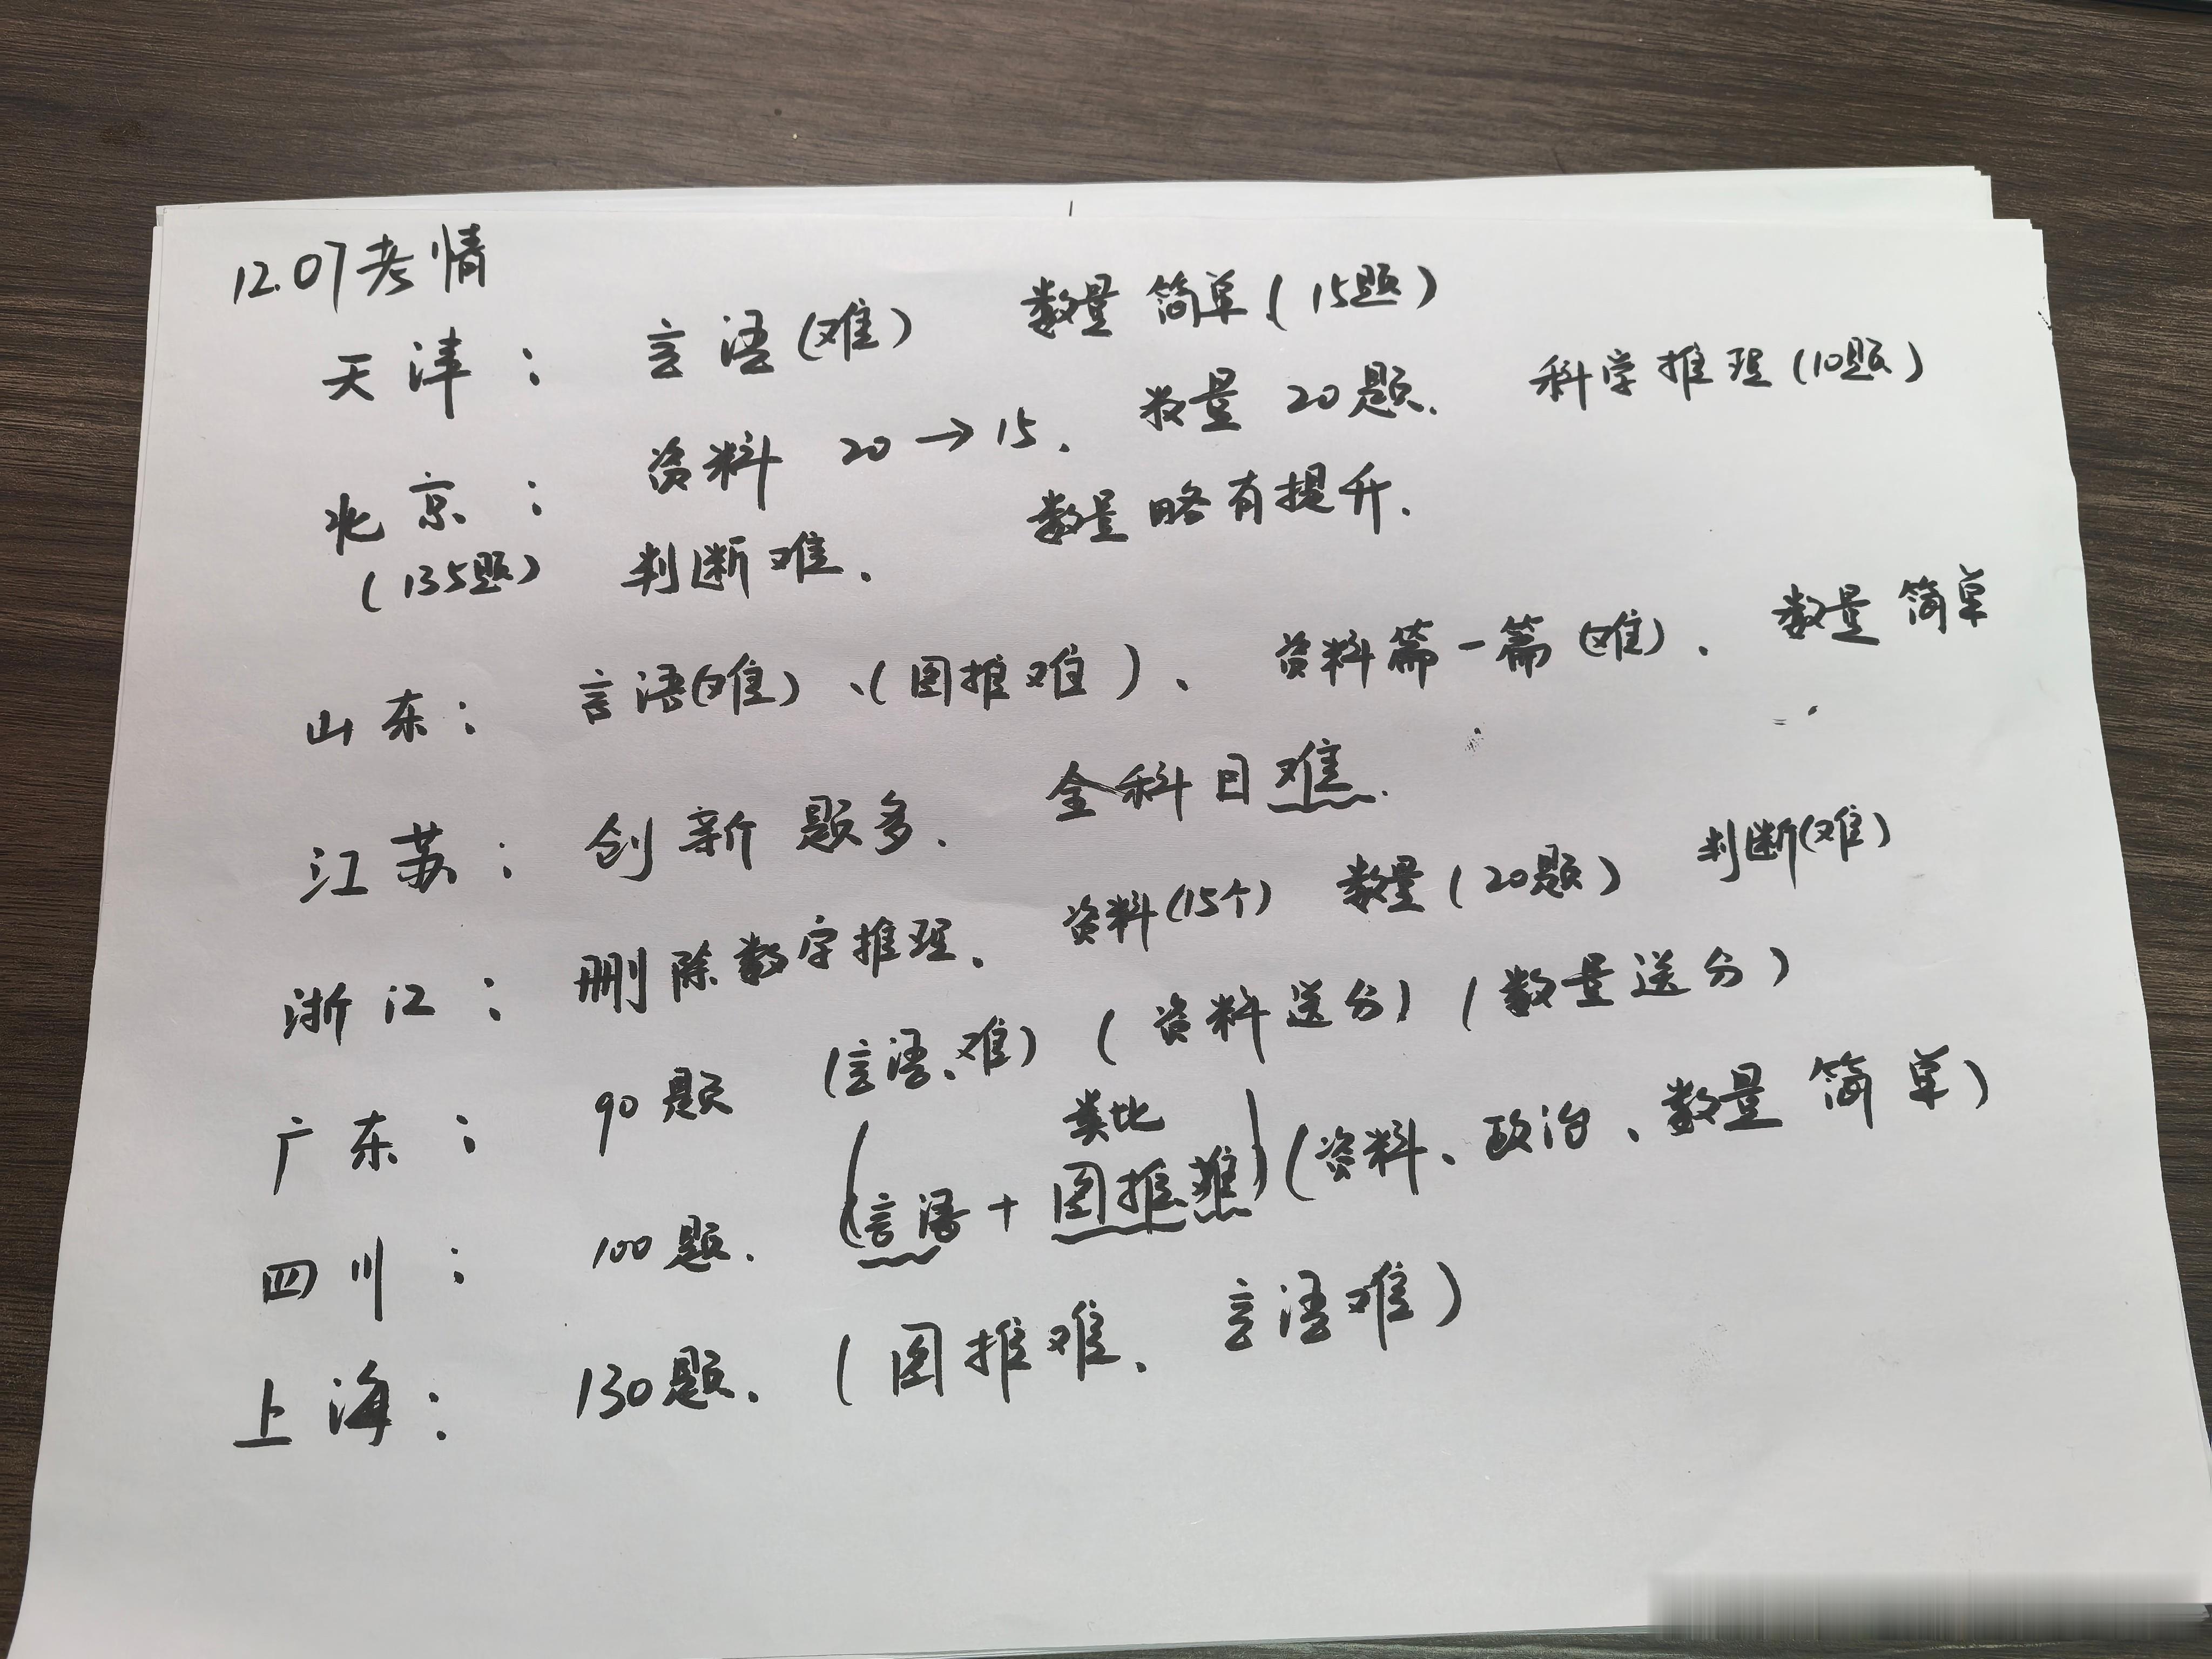 12.07考情
天津： 言语(难) 数量 简单(15题)
北京： 资料 20→15. 数量 20题. 科学推理(10题)
(135题) 判断难. 数量略有提升.
山东： 言语(难)、(图推难)、 资料篇一篇(难). 数量 简单
江苏： 创新题多. 全科目难.
浙江： 删除数字推理. 资料(15个) 数量(20题) 判断(难)
广东： 90题 (言语、难) (资料送分) (数量送分)
类比
四川： 100题. (言语+图推难) (资料、政治、数量 简单)
上海： 130题. (图推难、 言语难)